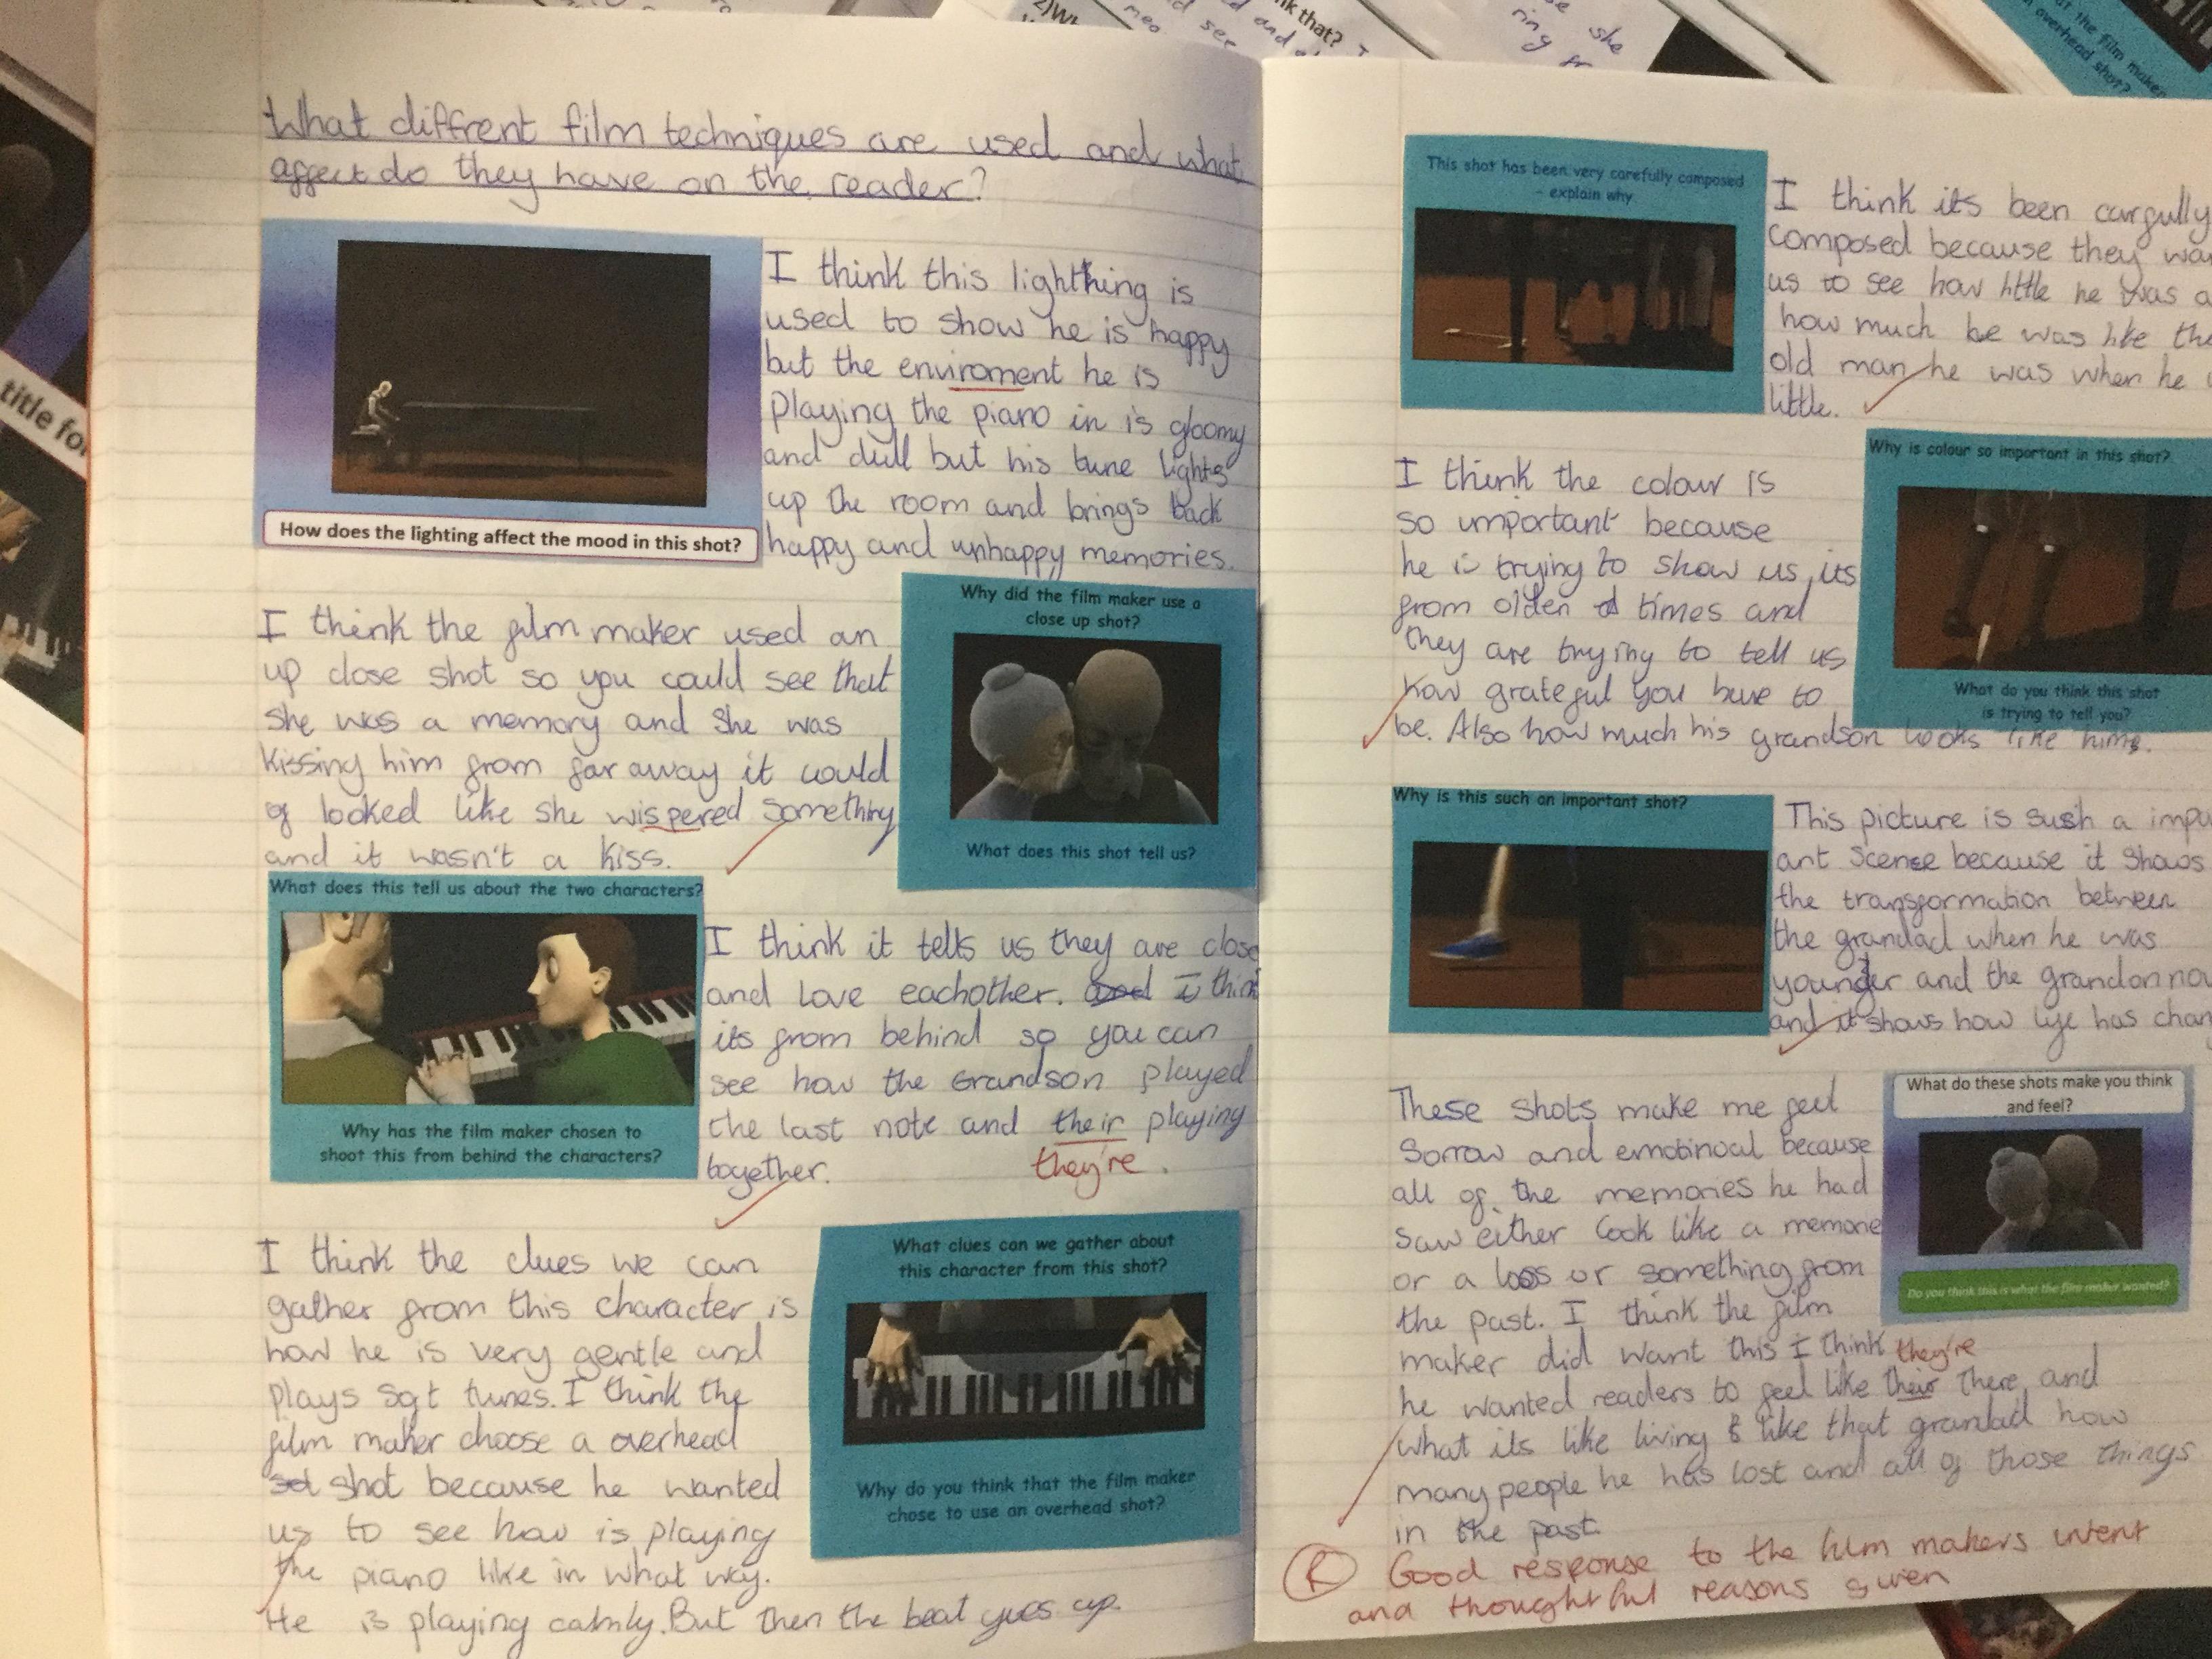 What diffrent film techniques are used and what
affect do they have on the reader?
How does the lighting affect the mood in this shot?
I think this lighthing is
used to show he is happy
but the enviroment he is
playing the piano in is gloomy
and dull but his tune lights
up the room and brings back
happy and unhappy memories.
I think the film maker used an
up close shot so you could see that
she was a memory and she was
kissing him from far away it could
of looked like she wispered something
and it wasn't a kiss.
Why did the film maker use a
close up shot?
What does this shot tell us?
What does this tell us about the two characters?
Why has the film maker chosen to
shoot this from behind the characters?
I think it tells us they are close
and love eachother. and I think
its from behind so you can
see how the Grandson played
the last note and their playing
they're.
together.
I think the clues we can
gather from this character is
how he is very gentle and
plays soft tunes. I think the
film maker choose a overhead
shot because he wanted
us to see how is playing
the piano like in what way.
He is playing calmly. But then the beat goes up.
What clues can we gather about
this character from this shot?
Why do you think that the film maker
chose to use an overhead shot?
This shot has been very carefully composed
- explain why
I think its been carfully
composed because they
us to see how little he was
how much he was like the
old man he was when he
little.
I think the colour is
so important because
he is trying to show us, its
from olden times and
they are trying to tell us
how grateful you have to
be. Also how much his grandson looks like him.
Why is colour so important in this shot?
What do you think this shot
is trying to tell you?
Why is this such an important shot?
This picture is such a
ant scense because it shows
the transformation between
the grandad when he was
younger and the grandon
and it shows how life has
These shots make me feel
sorrow and emotinoal because
all of the memories he had
saw either look like a memorie
or a loss or something from
the past. I think the film
maker did want this I think they're
he wanted readers to feel like their there and
what its like living like that grandad how
many people he has lost and all of those things
in the past.
What do these shots make you think
and feel?
Do you think this is what the film maker wanted?
R Good response to the film makers intent
and thoughtful reasons given
title for
nk that?
at the film maker
overhead shot?
she